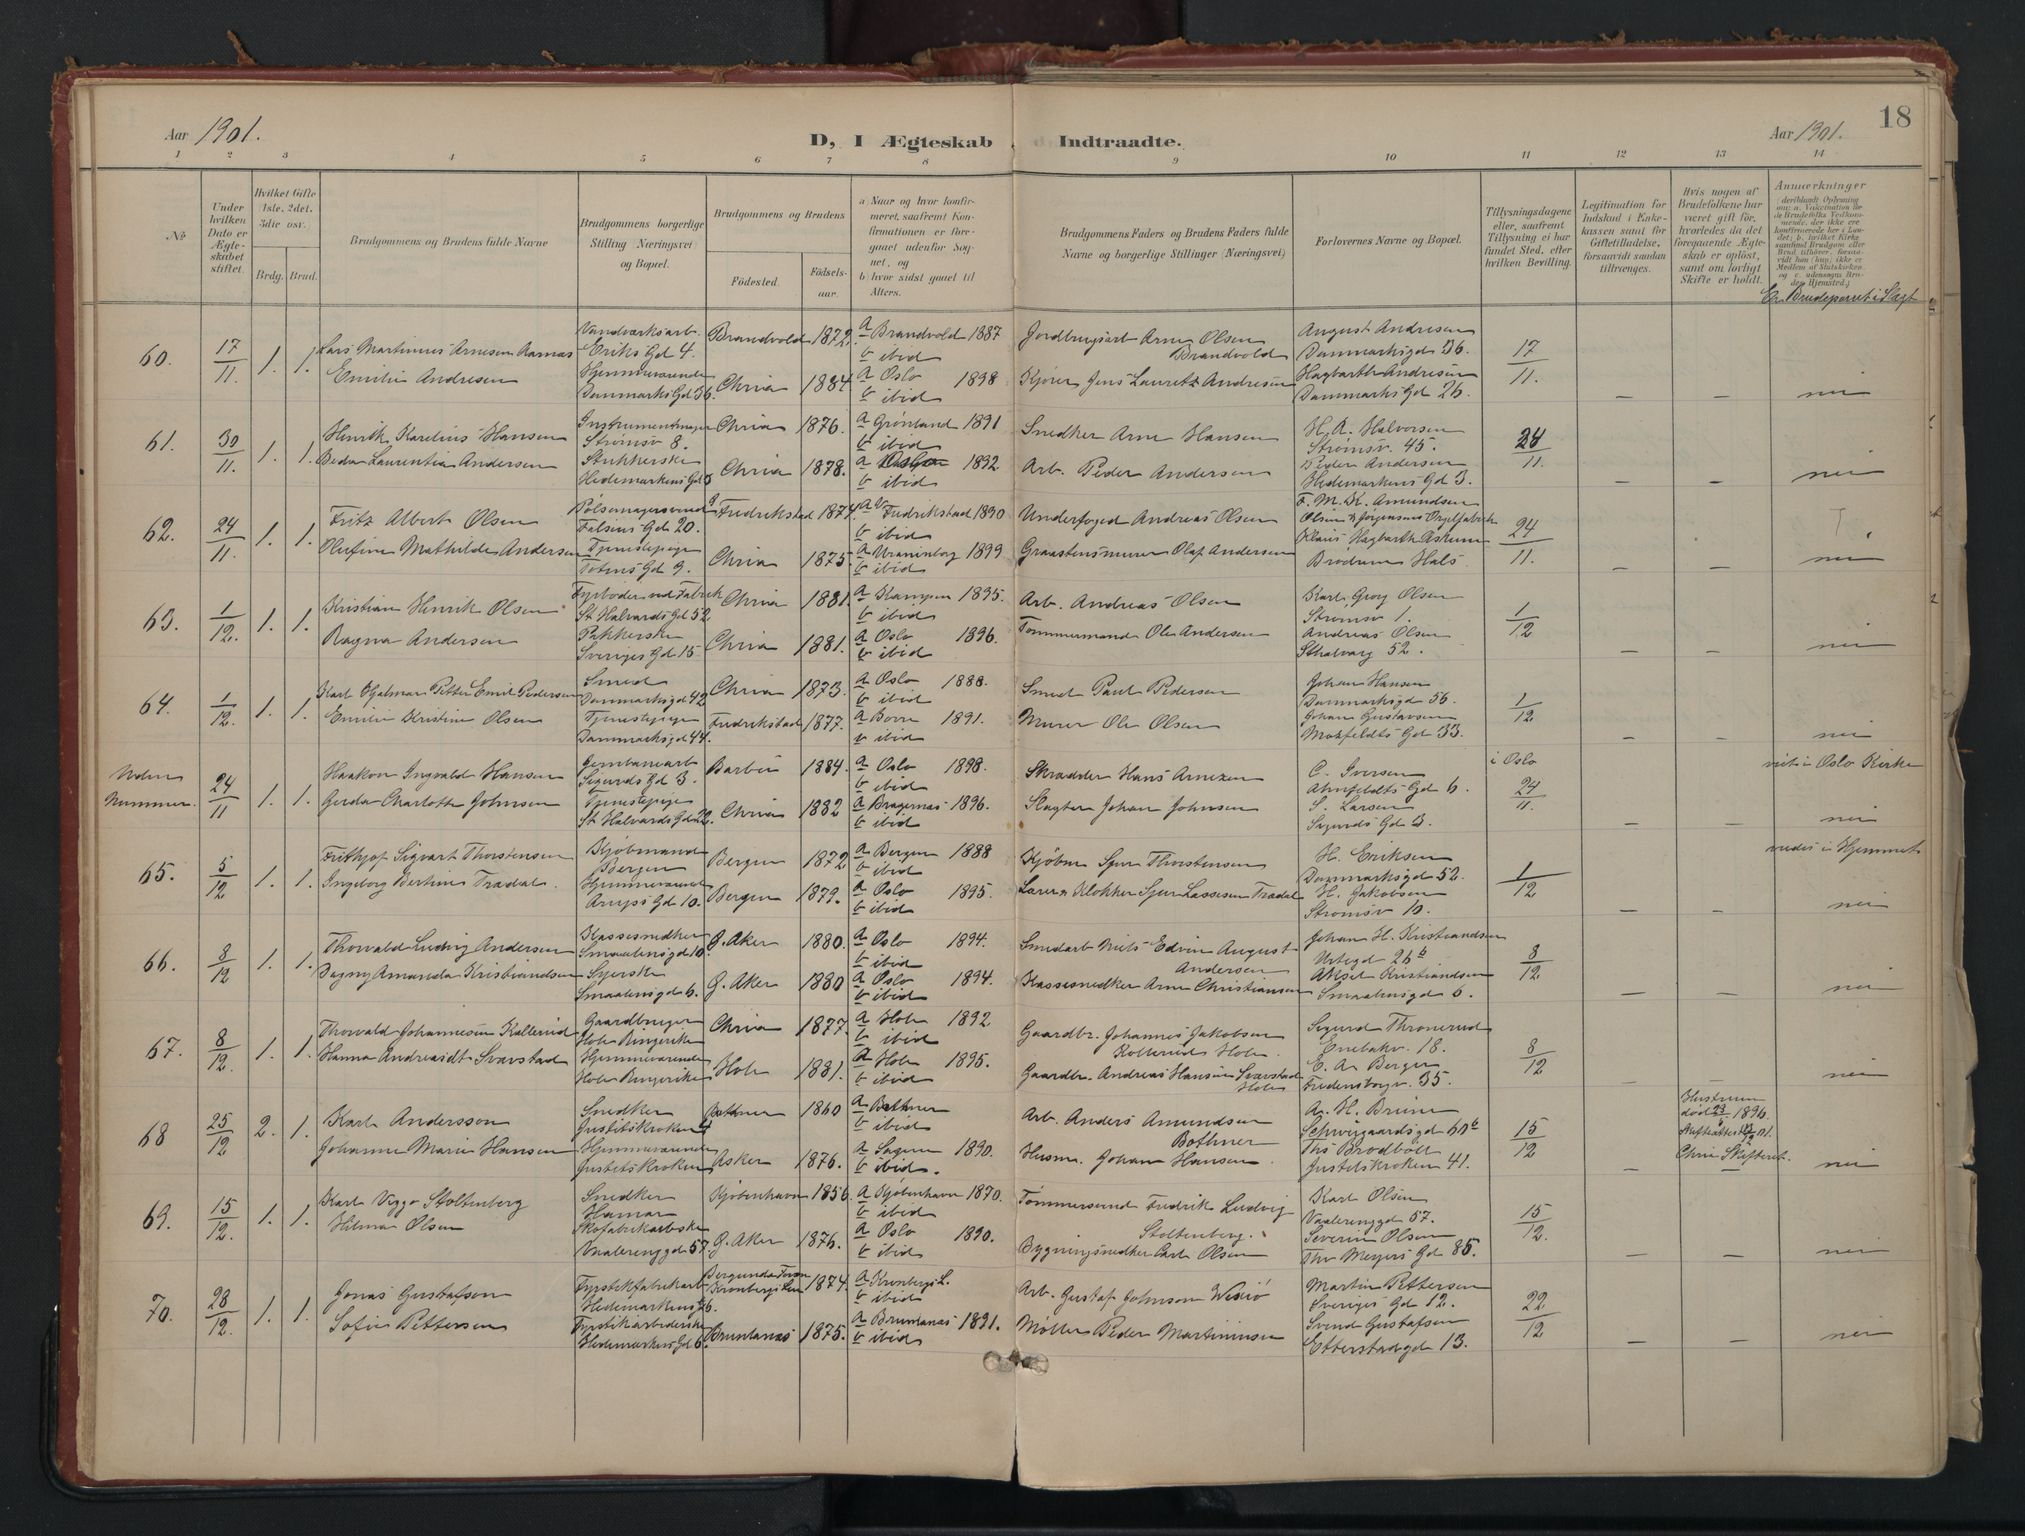 18
Aar 1901.
D, I Ægteskab Indtraadte.
Aar 1901.
1 2 3 4 5 6 7 8 9 10 11 12 13 14
No
Under hvilken Dato er Ægteskabet stiftet.
Hvilket Gifte 1ste, 2det, 3die osv.
Brdg. Brud.
Brudgommens og Brudens fulde Navne
Brudgommens borgerlige Stilling (Næringsvei) og Bopæl.
Brudgommens og Brudens
Fødested. Fødselsaar.
a Naar og hvor konfirmeret, saafremt Konfirmationen er foregaaet udenfor Sognet, og
b hvor sidst gaaet til Alters.
Brudgommens Faders og Brudens Faders fulde Navne og borgerlige Stillinger (Næringsvei)
Forlovernes Navne og Bopæl.
Tillysningsdagene eller, saafremt Tillysning ei har fundet Sted, efter hvilken Bevilling.
Legitimation for Indskud i Enkekassen samt for Giftetilladelse, forsaavidt saadan tiltrænges.
Hvis nogen af Brudefolkene har været gift før, hvorledes da det foregaaende Ægteskab er opløst, samt om lovligt Skifte er holdt.
Anmærkninger
Er Brudeparret i Slægt
60. 17/11 1. 1. Lars Martinius Arnesen Aarnæs
Emilie Andresen
Vandværksarb. Eriks Gd 4.
Hjemmeværende Danmarks Gd 36.
Brandvold 1872. a Brandvold 1887 b ibid
Chria 1884 a Oslo 1898 b ibid
Jordbrugsarb Arne Olsen Brandvold
Kjører Jens Lauretz Andresen
August Andresen Danmarksgd 36.
Hagbarth Andresen Danmarks Gd 26.
17/11. — nei
61. 30/11. 1. 1. Henrik Karelius Hansen
Beda Laurentia Andersen
Instrumentmager Strømsv 8.
Hedemarkens Gd 3
Chria 1876. a Grønland 1891 b ibid
Chria 1878. a 1892 b ibid
Snedker Arne Hansen
Arb. Peder Andersen
H. A. Halvorsen Strømsv. 45.
Peder Andersen Hedemarkens Gd 3.
24/11. — — nei
62. 24/11. 1. 1. Fritz Albert Olsen
Olufine Mathilde Andersen
Pølsemagersvend Falsens Gd 20.
Tjenestepige Totens Gd 9.
Fredrikstad 1874. a Fredrikstad 1890 b ibid
Chria 1875. a Uranienborg 1899 b ibid
Underfoged Andreas Olsen
Graastensmurer Olaf Andersen
F. M. K. Amundsen Olsen & Jørgensens Orgelfabrik
Klaus Hagbarth Askum
24/11. — — nei
63. 1/12. 1. 1. Kristian Henrik Olsen
Ragna Andersen
Fyrbøder ved Fabrik St Halvards Gd 52
Pakkerske Sveriges Gd 15
Chria 1881. a Kampen 1895. b ibid
Chria 1881. a Oslo 1896. b ibid
Arb. Andreas Olsen
Tømmermand Ole Andersen
Karl Georg Olsen Strømsv 1.
Andreas Olsen 52.
1/12 — — nei
64. 1/12. 1. 1. Karl Hjalmar Petter Emil Pedersen
Emilie Kristine Olsen
Smed Danmarksgd 42
Tjenestepige Danmarksgd 44.
Chria 1873. a Oslo 1888. b ibid
Fredrikstad 1877. a Borre 1891. b ibid
Smed Paul Pedersen
Murer Ole Olsen
Johan Hansen Danmarksgd 56.
Johan Gustavsen Motzfeldts Gd 33.
1/12 — — nei
Uden Nummer. 24/11 1. 1. Haakon Ingvald Hansen
Gerda Charlotte Johnsen
Jernbanearb Sigurds Gd 3.
Tjenestepige St Halvards Gd 22.
Barbu 1884. a Oslo 1898. b ibid
Chria 1882 a Bragernæs 1896. b ibid
Skrædder Hans Arnezen
Slagter Johan Johnsen
C. Iversen Ahnfeldts Gd 6.
S. Larsen Sigurds Gd 3.
i Oslo 24/11. — — viet i Oslo Kirke nei
65. 5/12 1. 1. Frithjof Sigvart Thorstensen
Ingeborg Bertine Trædal.
Kjøbmand Bergen
Hjemmeværende Arups Gd 10.
Bergen 1872 a Bergen 1888 b ibid
Bergen 1879. a Oslo 1895. b ibid
Kjøbm Sjur Thorstensen
Lærer & Klokker Sjur Lassesen Trædal
H. Eriksen Danmarksgd 52.
H. Jakobsen Strømsv 10.
1/12 — — viedes i Hjemmet nei
66. 8/12 1. 1. Thorvald Ludvig Andersen
Dagny Amanda Kristiandsen
Kassesnedker Smaalensgd 10.
Syerske Smaalensgd 6.
Ø. Aker 1880. a Oslo 1894. b ibid
Ø. Aker 1880 a Oslo 1894. b ibid
Smedarb Niels Edvin August Andersen
Kassesnedker Arne Christiansen
Johan H. Kristiandsen Urtegd 26b
Aksel Kristiandsen Smaalensgd 6.
8/12 — — nei
67. 8/12 1. 1. Thorvald Johannesen Kallerud
Hanna Andreasdt Svarstad
Gaardbruger Hole Ringerike
Hjemmeværende Hole Ringerike
Chria 1877. a Hole 1892 b ibid
Hole 1881. a Hole 1895. b ibid
Gaardbr. Johannes Jakobsen Kollerud Hole.
Gaardbr. Andreas Hansen Svarstad Hole
Sigurd Thronerud Enebakv. 18.
E. A. Bergen Fredensborgv. 35.
8/12 — — nei
68 25/12 2. 1. Karl Andersson
Johanne Marie Hansen
Snedker Justitskroken 4
Hjemmeværende Justitskroken
Bothner 1860 a Bothner b ibid
Asker 1876. a Sagene 1890. b ibid.
Arb. Anders Amundsen Bothner
Husm. Johan Hansen.
A. H. Bruun Schweigaardsgd 60b
Ths Brodbøll Justitskroken 41.
15/12 — Hustruen død 1896. Chria Skifteret. nei
69. 15/12. 1. 1. Karl Viggo Stoltenberg
Hilma Olsen
Snedker Hamar
Skofabrikarbske Vaalerenggd 57.
Kjøbenhavn 1856. a Kjøbenhavn 1870. b ibid
Ø. Aker 1876. a Oslo 1890. b ibid
Tømmersvend Fredrik Ludvig Stoltenberg.
Bygningssnedker Carl Olsen
Karl Olsen Vaalerenggd 57.
Severin Olsen Thv Meyers Gd 85.
15/12. — — nei
70. 28/12. 1. 1. Jonas Gustafson
Sofie Pettersen
Fyrstikfabrikarb Hedemarkens Gd 6.
Fyrstikarbderske Hedemarkens Gd 6.
Kronbergs Len 1874. a Kronbergs L. b ibid
Brunlanæs 1875. a Brunlanæs 1891. b ibid
Arb. Gustaf Johnson Wexiö
Møller Peder Martininsen
Martin Pettersen Sveriges Gd 12.
Svend Gustafson Etterstadgd 13.
22/12 — — nei